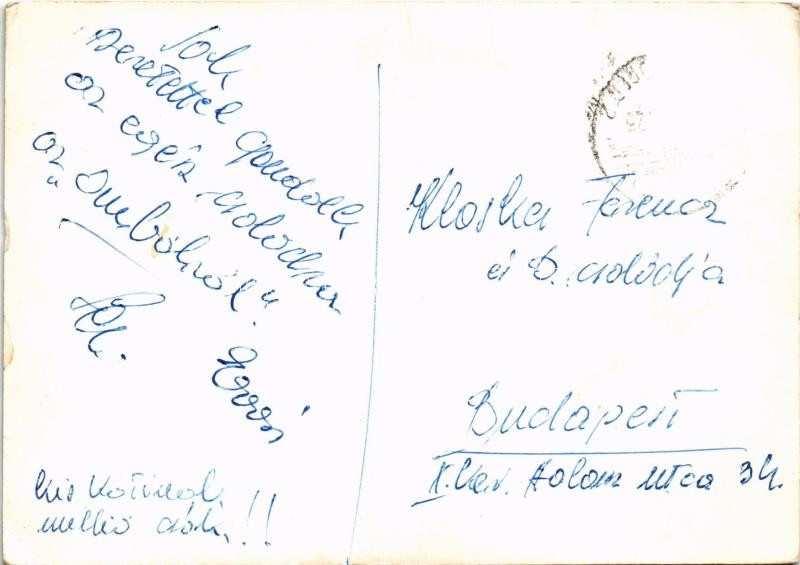 Sok
szeretettel gondolk
az egész családra
az "Ombóliról".
Kis Katinak
millió csók!!
Kloska Ferenc
és B. családja
Budapest
X. ker. Halom utca 34.